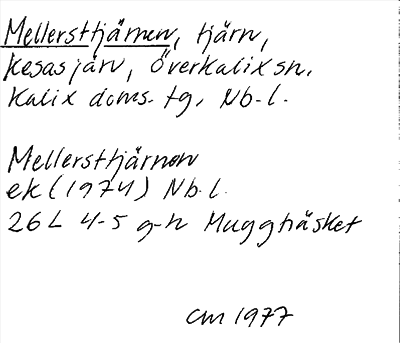 Mellersttjärnen, tjärn,
Kesasjärv, Överkalix sn.
Kalix doms. tg, Nb. l.
Mellersttjärnen
ek (1974) Nb. l.
26L 4-5 g-h Muggträsket
CM 1977